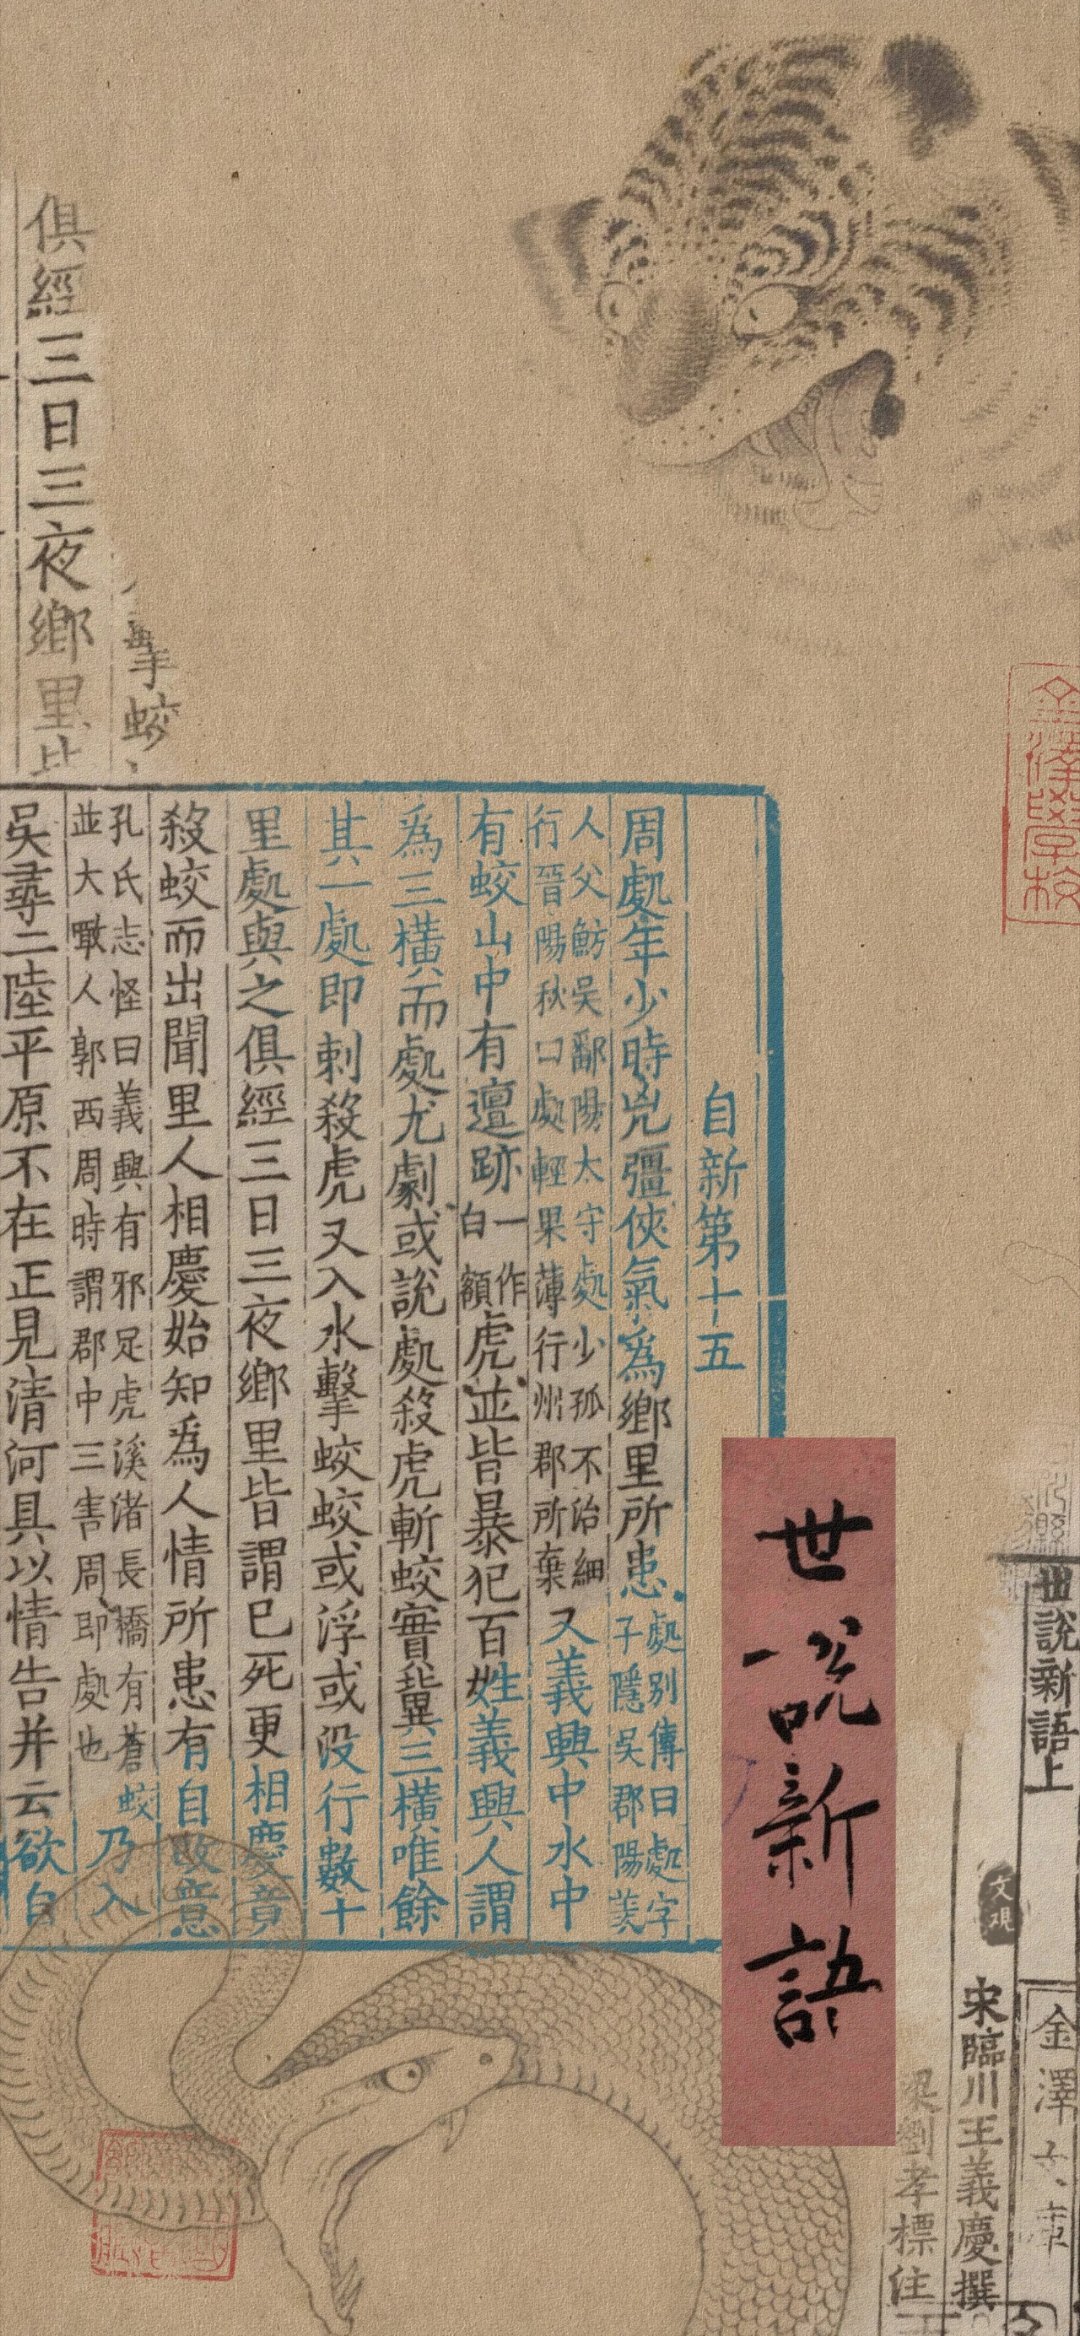 自新第十五
周處年少時兇彊俠氣爲鄉里所患處別傳曰處字
子隱吳郡陽羨
人父魴吳鄱陽太守處少孤不治細
行晉陽秋曰處輕果薄行州郡所棄又義興中水中
有蛟山中有邅跡一作
白額虎並皆暴犯百姓義興人謂
爲三橫而處尤劇或說處殺虎斬蛟實冀三橫唯餘
其一處即刺殺虎又入水擊蛟蛟或浮或没行數十
里處與之俱經三日三夜鄉里皆謂已死更相慶竟
殺蛟而出聞里人相慶始知爲人情所患有自改意
孔氏志怪曰義興有邪足虎溪渚長橋有蒼蛟
並大噉人郭西周時謂郡中三害周即處也乃入
吳尋二陸平原不在正見清河具以情告并云欲自
擊蛟
俱經三日三夜鄉里
世說新語
世說新語上
宋臨川王義慶撰
梁劉孝標注
金澤文庫
金澤學校